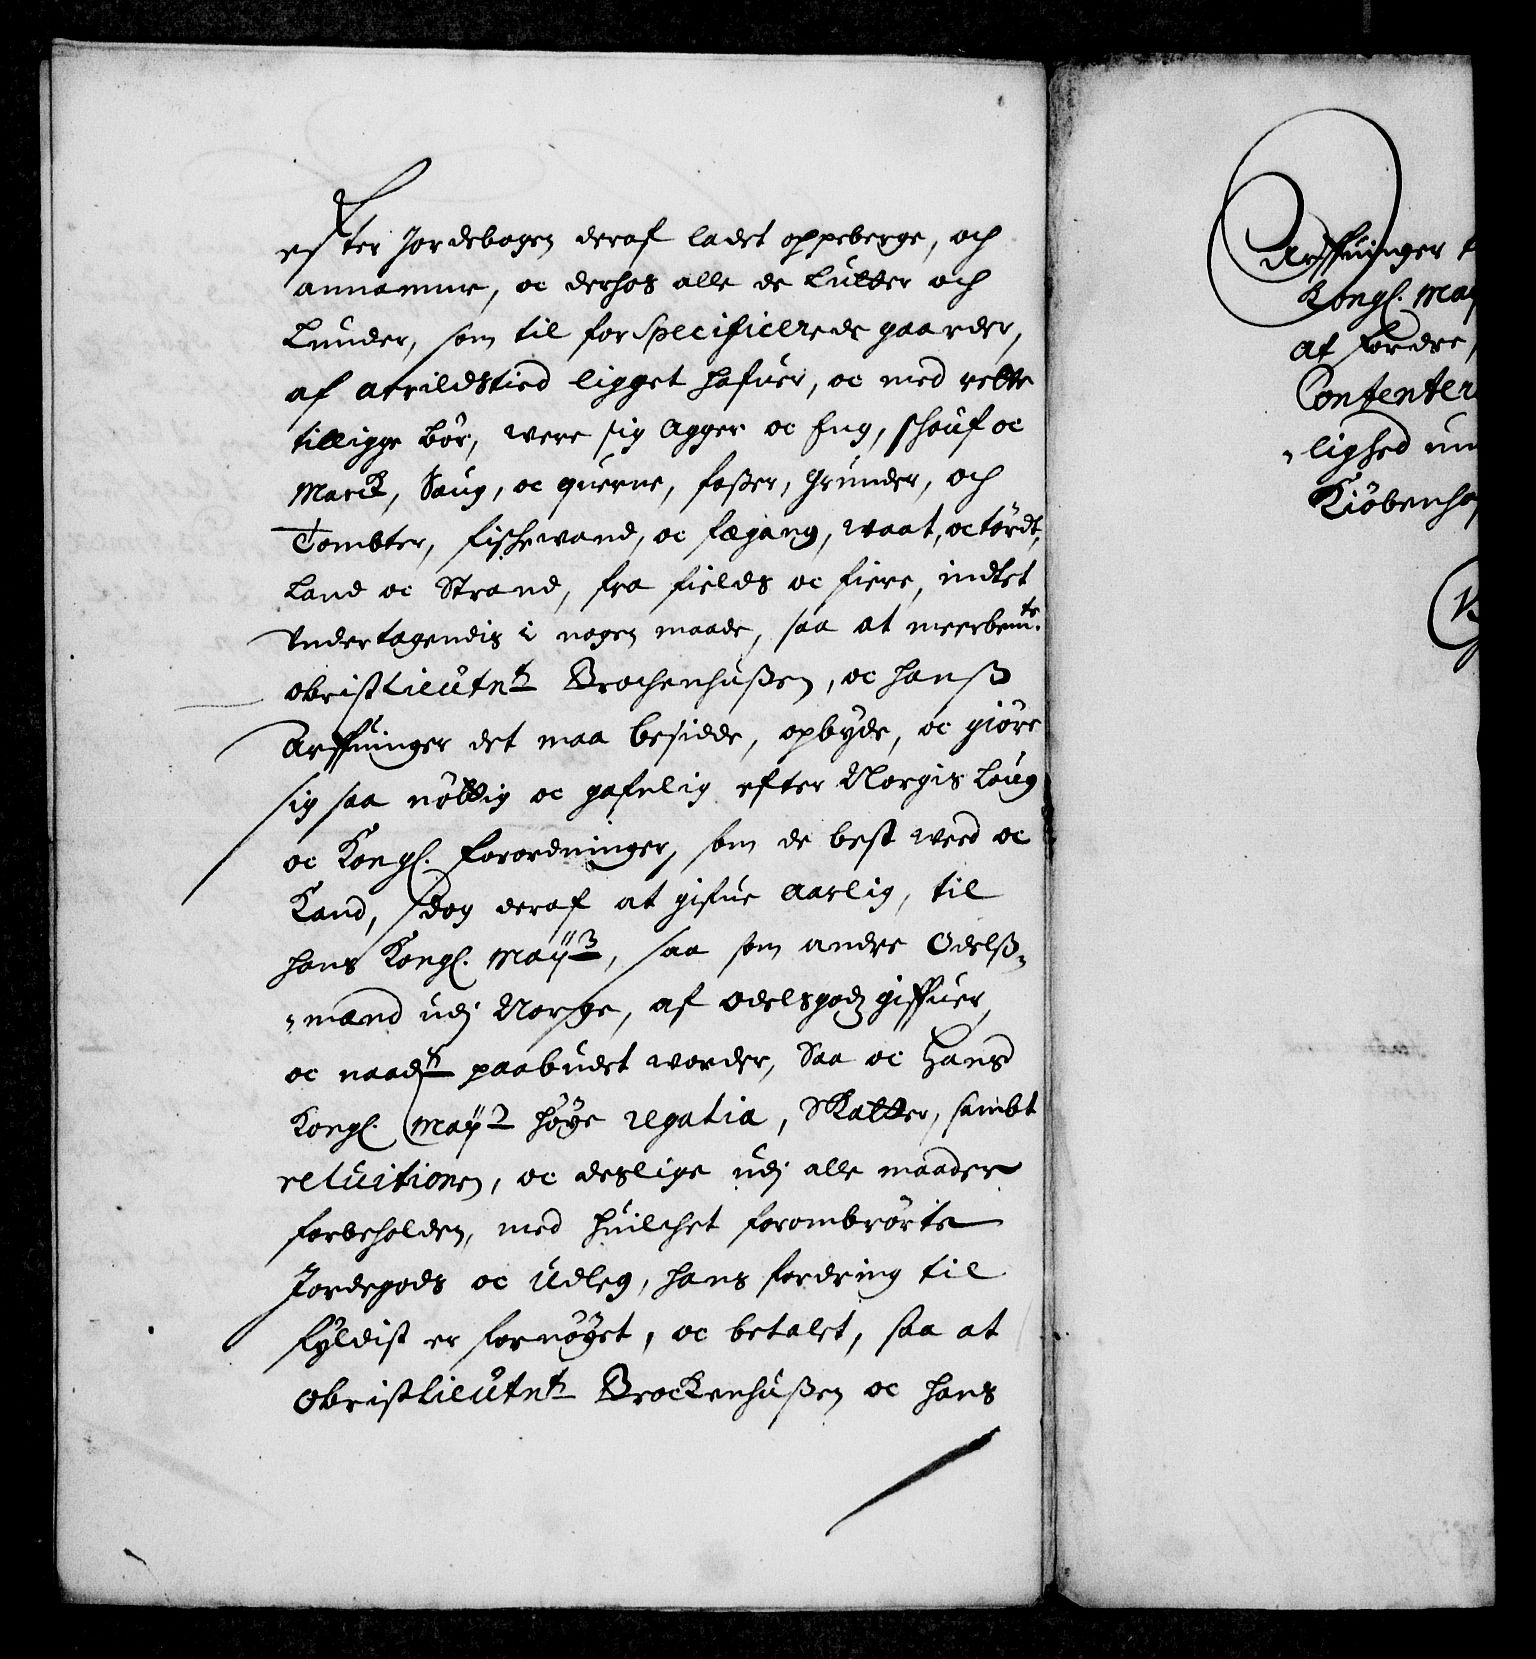 efter Jordebogen deraf ladet oppeberge, och
annamme, oc derhos alle de Lutter och
Lunder, som til forSpecificerede gaarder,
af arrildstied ligget hafuer, oc med rette
tilligge bör, were sig Agger oc Eng, skouf oc
Marck, Saug, oc querne, foßer, Grunder, och
Tombter, fischevand, oc fægang, vaat, oc tördt,
Land oc Strand, fra fields oc fiere, indtet
Undertagendis i nogen maade, saa at meerbemte.
obristLieutnt Brochenhußen, oc hanß
Arffuinger det maa besidde, opbyde, oc giöre
sig saa nöttig oc gafnlig efter Norgis Loug
oc Kongl. Forordninger, som de best weed oc
Kand, dog deraf at gifue Aarlig, til
hans Kongl. Maytz, saa som andre Odelß-
-mænd udj Norge, af Odelsgodz giffuer,
oc naadt paabudet worder, Saa oc Hans
Kongl. Mayt höye regalia, Skatter, sambt
reluitionen, oc deslige udj alle maader
forbeholden, med huilchet forombrörte
Jordegods oc Udleg, hans fordring til
fyldist er fornöyet, oc betalet, saa at
ObristLieutnt Brockenhußen oc hans
Arffuinger
Kongl. May
at fordre,
Contenter
-lighed
Kiöbenha